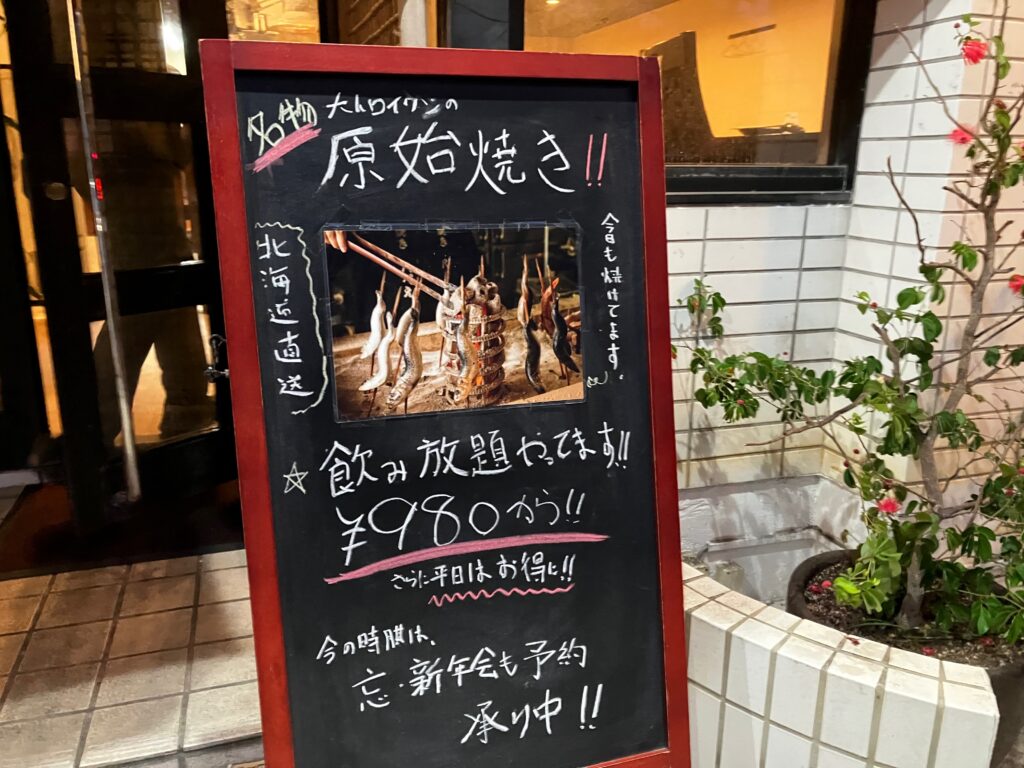 名物
大トロイワシの
原始焼き!!
北海道直送
今日も焼けてます。
☆飲み放題やってます!!
¥980から!!
さらに平日はお得に!!
今の時期は、
忘・新年会も予約
承り中!!